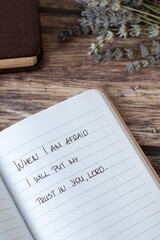 WHEN I AM AFRAID
I WILL PUT MY
TRUST IN YOU, LORD.